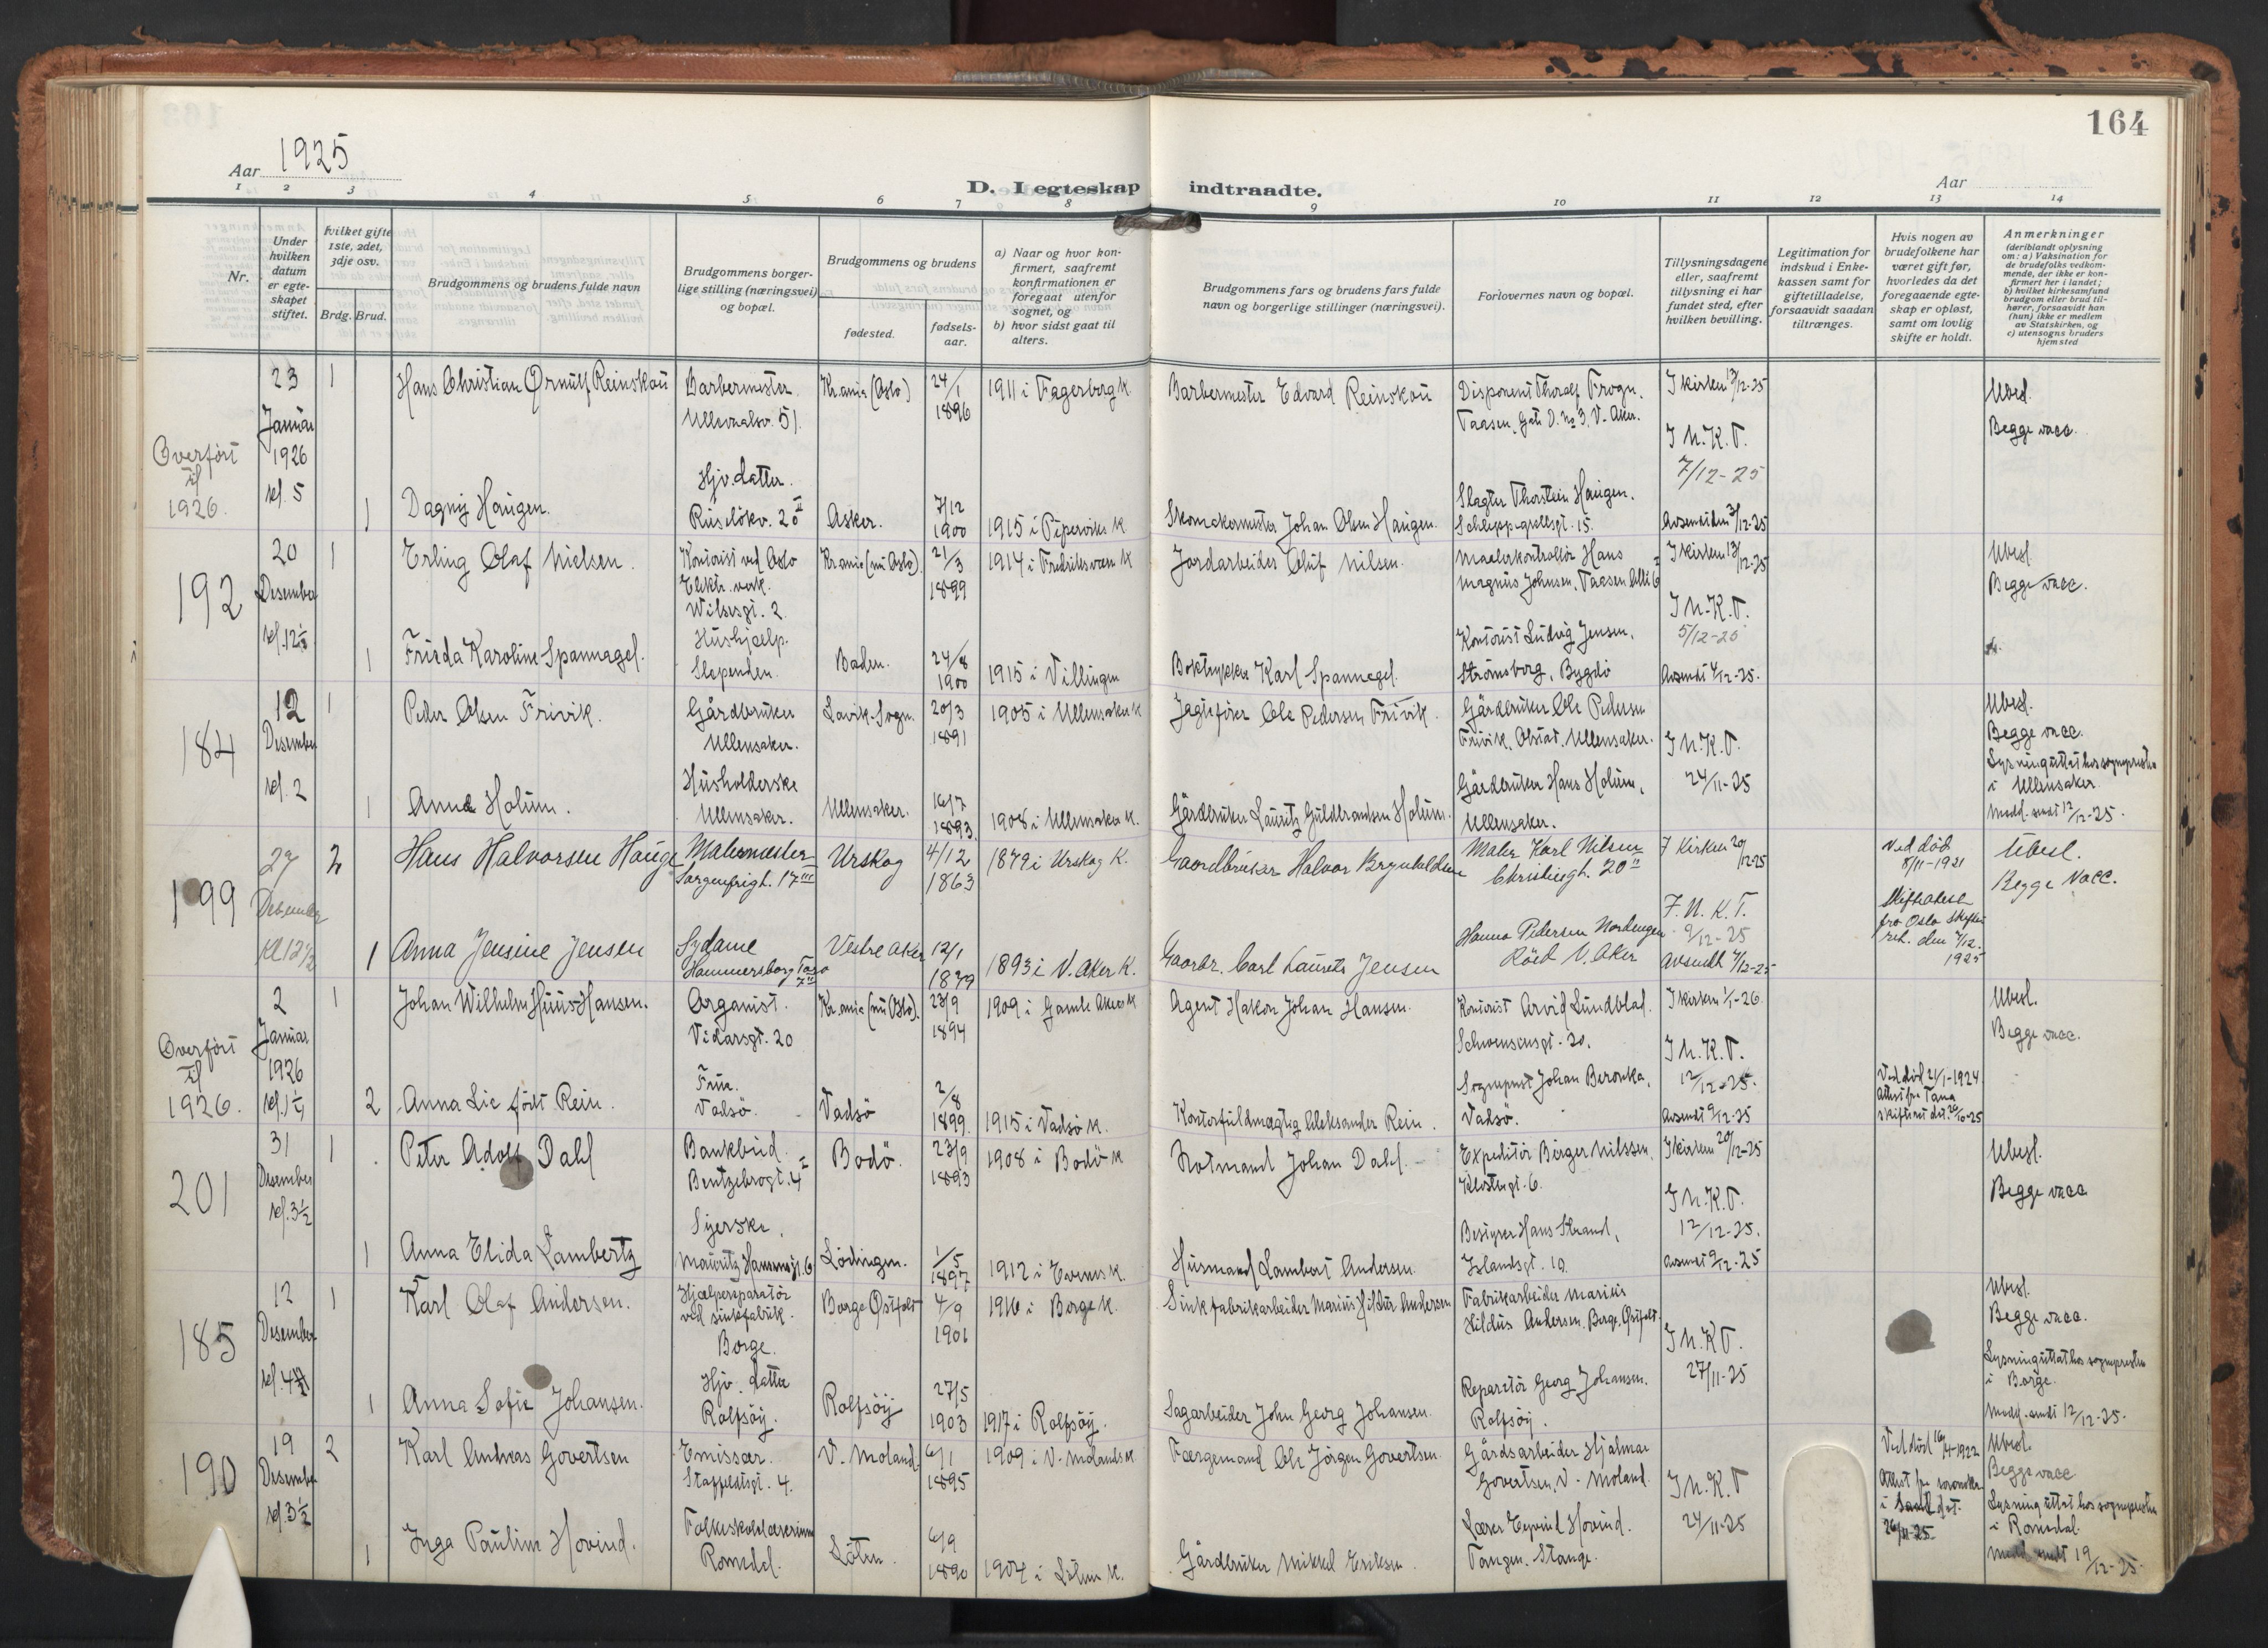 164
Aar 1925
Aar
D. I egteskap indtraadte.
1 2 3 4 5 6 7 8 9 10 11 12 13 14
Nr.
Under hvilken datum er egteskapet stiftet.
hvilket gifte 1ste, 2det, 3dje osv.
Brdg. Brud.
Brudgommens og brudens fulde navn
Brudgommens borgerlige stilling (næringsvei) og bopæl.
Brudgommens og brudens
fødested.
fødselsaar.
a) Naar og hvor konfirmert, saafremt konfirmationen er foregaat utenfor sognet, og
b) hvor sidst gaat til alters.
Brudgommens fars og brudens fars fulde navn og borgerlige stillinger (næringsvei).
Forlovernes navn og bopæl.
Tillysningsdagene eller, saafremt tillysning ei har fundet sted, efter hvilken bevilling.
Legitimation for indskud i Enkekassen samt for giftetilladelse, forsaavidt saadan tiltrænges.
Hvis nogen av brudefolkene har været gift før, hvorledes da det foregaaende egteskap er opløst, samt om lovlig skifte er holdt.
Anmerkninger
(deriblandt oplysning om: a) Vaksination for de brudefolks vedkommende, der ikke er konfirmert her i landet; b) hvilket kirkesamfund brudgom eller brud tilhører, forsaavidt han (hun) ikke er medlem av Statskirken, og c) utensogns bruders hjemsted
Overført til 1926.
23 Januar 1926 kl. 5
1 Hans Christian Ørnulf Reinskou
Barbermester. Ullevaalsv. 51.
Kr.ania (Oslo) 24/1 1896
1911 i Fagerborg K
Barbermester Edvard Reinskou
Disponent Thoralf Frogn. Taasen, Gate D. No 3, V. Aker.
I kirken 13/12-25
I N.K.T. 7/12-25
Avsendt den 3/12-25
Ubesl. Begge vacc.
1 Dagny Haugen.
Hjv. datter. Ruseløkv. 20 II
Asker. 7/12 1900
1915 i Pipervikens K
Skomakermester Johan Olsen Haugen.
Slagter Thorstein Haugen. Schleppegrellsgt. 15.
192
20 Desember kl. 12½
1 Erling Olaf Nielsen.
Kontorist ved Oslo Elektr. verk. Wilsesgt. 2
Kr.ania (nu Oslo). 21/3 1899
1914 i Fredriksværn K
Jordarbeider Oluf Nilsen.
Maalerkontrollør Hans Magnus Johnsen, Taasen Allé 6
I kirken 13/12-25
I N.K.T. 5/12-25
Avsendt 4/12-25.
Ubesl. Begge vacc.
1 Frieda Karoline Spannagel.
Hushjelp. Slependen.
Baden. 24/8 1900
1915 i Villingen
Boktrykker Karl Spannagel.
Kontorist Ludvig Jensen, Strømsborg, Bygdø
184
12 Desember kl. 2
1 Peder Olsen Frivik.
Gårdbruker Ullensaker.
Lavik. Sogn. 20/3 1891
1905 i Ullensaker K
Jagtefører Ole Pedersen Frivik.
Gårdbruker Ole Pedersen Frivik, Olstad, Ullensaker.
I N.K.T. 24/11-25
Ubesl. Begge vacc.
Lysning uttat hos sognepresten i Ullensaker.
Medd. sendt 12/12-25.
1 Anna Holum.
Husholderske Ullensaker.
Ullensaker. 16/7 1893.
1908 i Ullensaker K.
Gårdbruker Lauritz Guldbrandsen Holum.
Gårdbruker Hans Holum, Ullensaker.
199
27 Desember Kl 12½
2 Hans Halvorsen Hauge
Malermester Sorgenfrigt. 17 III
Urskog 4/12 1863
1879 i Urskog K.
Gaardbruker Halvor Brynhildsen
Maler Karl Nilsen Christiesgt. 20 II
I Kirken 20/12-25
I. N. K. T. 9/12-25
Avsendt 7/12-25
Ved død 8/11-1921
Skifteattest fra Oslo skifteret. den 7/12. 1925
Ubesl. Begge vacc.
1 Anna Jensine Jensen
Sydame Hammersborg Torv 7 III
Vestre Aker 12/1 1879
1893 i V. Aker K.
Gaardbr. Carl Laurets Jensen
Hanna Pedersen Nordengen Röed V. Aker
Overført til 1926.
2 Januar 1926 kl. 1¼
1 Johan Wilhelm Huus-Hansen.
Organist. Vidarsgt. 20
Kr.ania (nu Oslo). 23/9 1894
1909 i Gamle Akers K
Agent Hakon Johan Hansen.
Kontorist Arvid Lundblad. Schwensensgt. 20.
I kirken 1/1-26.
I N.K.T. 12/12-25.
Avsendt 9/12-25
Ubesl. Begge vacc.
2 Anna Lie født Rein.
Frue. Vadsø.
Vadsø 2/8 1899.
1915 i Vadsø K.
Kontorfuldmægtig Aleksander Rein.
Sogneprest Johan Beronka, Vadsø.
Ved død 21/1-1924
Attest fra Tana skifterett dat. 26/10-25
201
31 Desember kl. 3½
1 Peter Adolf Dahl
Bankbud. Bentzebrogt. 4 I
Bodø. 23/9 1893
1908 i Bodø K
Notmand Johan Dahl.
Expeditør Birger Nilssen, Klostergt. 6.
I kirken 20/12-25
I N.K.T. 12/12-25.
Avsendt 9/12-25
Ubesl. Begge vacc
1 Anna Elida Lambertz
Syerske, Mauritz Hansensgt. 6
Lødingen. 1/5 1897
1912 i Evenes K.
Husmand Lambert Andersen.
Besigrer Hans Strand, Islandsgt. 10.
185
12 Desember kl. 4½
1 Karl Olaf Andersen.
Hjælpereparatør ved sinkfabrik. Borge.
Borge Østfold 4/9 1901
1916 i Borge K.
Sinkfabrikarbeider Marius Hildur Andersen
Fabrikarbeider Marius Hildus Andersen. Borge, Østfold.
I N.K.T. 27/11-25
Ubesl. Begge vacc.
Lysning uttat hos sognepresten i Borge.
Medd. sendt 12/12-25.
1 Anna Sofie Johansen.
Hjv. datter Rolfsøy.
Rolfsøy 27/5 1903
1917 i Rolfsøy.
Sagarbeider John Georg Johansen.
Reparatør Georg Johansen. Rolfsøy.
190
19 Desember kl. 3½
2 Karl Andreas Govertsen
Emissær. Staffeldtsgt. 4.
V. Moland. 6/1 1895
1909 i V. Molands K
Færgemand Ole Jørgen Govertsen.
Gårdsarbeider Hjalmar Govertsen, V. Moland.
I N.K.T 24/11-25
Ved død 16/4-1922
Attest fra sorenskr. i Sand dat. 26/11-25.
Ubesl. Begge vacc
Lysning uttat hos sognepresten i Romedal.
Medd. sendt 19/12-25.
1 Inga Pauline Hovind.
Folkeskolelærerinne Romedal.
Løten. 6/9 1890
1904 i Løten K.
Gårdbruker Mikkel Eriksen.
Lærer Eyvind Hovind. Tangen. Stange.